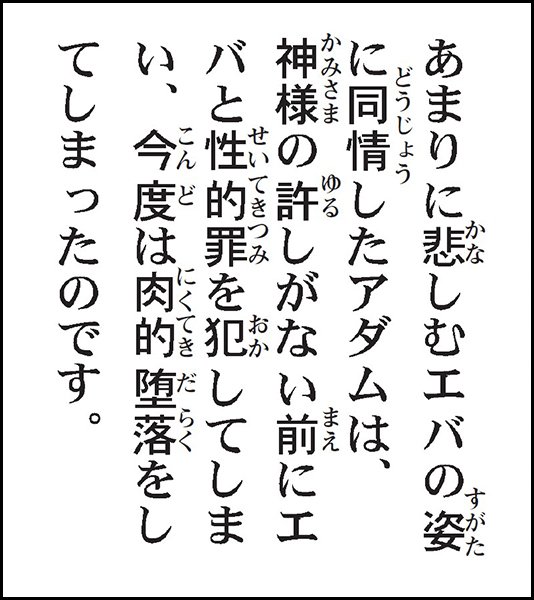 あまりに悲しむエバの姿
に同情したアダムは、
神様の許しがない前にエ
バと性的罪を犯してしま
い、今度は肉的堕落をし
てしまったのです。